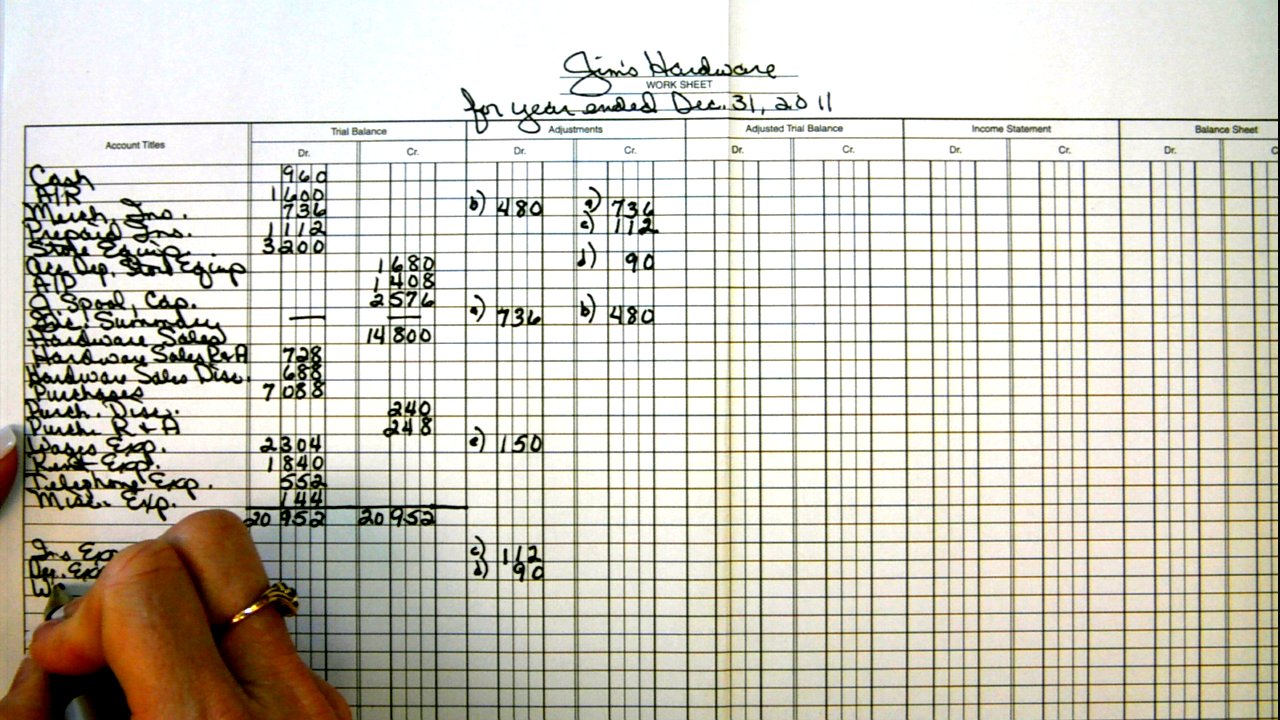 Jim's Hardware
WORK SHEET
for year ended Dec. 31, 2011
Account Titles Trial Balance Adjustments Adjusted Trial Balance Income Statement Balance Sheet
Dr. Cr. Dr. Cr. Dr. Cr. Dr. Cr. Dr. C
Cash 960
A/R 1600
Merch. Ins. 736 b) 480 a) 736
Prepaid Ins. 1112 c) 112
Store Equip. 3200
Acc. Dep. Store Equip 1680 d) 90
A/P 1408
J. Spool, Cap. 2576
Summary — — a) 736 b) 480
Hardware Sales 14800
Hardware Sales R+A 728
Hardware Sales Disc. 688
Purchases 7088
Purch. Disc. 240
Purch. R+A 248
Wages Exp. 2304 e) 150
Rent Exp. 1840
Telephone Exp. 552
Misc. Exp. 144
20952 20952
Ins Exp c) 112
Dep. Exp d) 90
W